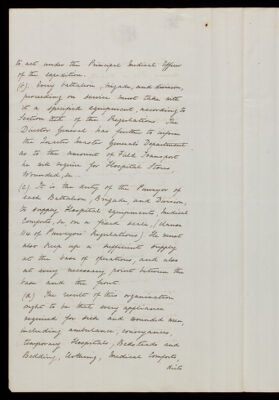 to act under the Principal Medical Officer
of the expedition.
(b). Every battalion, brigade, and division,
proceeding on service must take with
it a specified equipment, according to
Section of the Regulations. The
Director General has further to inform
the Quarter Master General's Department
as to the amount of Field Transport
he will require for Hospital Stores,
Wounded, &c.
(c) It is the duty of the Purveyor of
each Battalion, Brigade, and Division,
to supply Hospital equipments, Medical
Comforts, &c, on a fixed scale, (clause
114 of Purveyors' Regulations). He must
also keep up a sufficient supply
at the base of operations, and also
at every necessary point between the
base and the front.
(d) The result of this organisation
ought to be that every appliance
required for sick and wounded men,
including ambulance, conveyances,
temporary Hospitals, Bedsteads and
Bedding, Clothing, Medical Comforts,